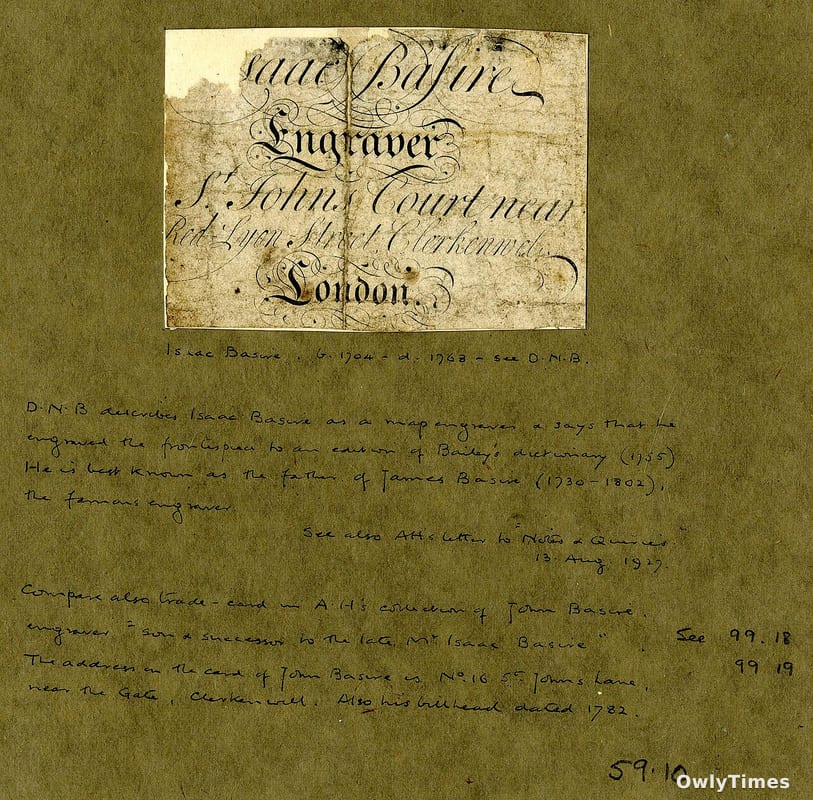 saac Basire
Engraver
St. Johns Court near
Red Lyon Street Clerkenwell
London.
Isaac Basire. b. 1704 - d. 1768 - see D.N.B.
D.N.B describes Isaac Basire as a map engraver & says that he
engraved the frontispiece to an edition of Bailey's dictionary (1755)
He is best known as the father of James Basire (1730-1802),
the famous engraver.
See also AH's letter to "Notes & Queries"
13 Aug 1927.
Compare also trade-card in A.H's collection of John Basire.
engraver "son & successor to the late Mr. Isaac Basire". See 99.18
99 19
The address on the card of John Basire is No. 16 St. Johns Lane,
near the Gate, Clerkenwell. Also his billhead dated 1782.
59.10
OwlyTimes